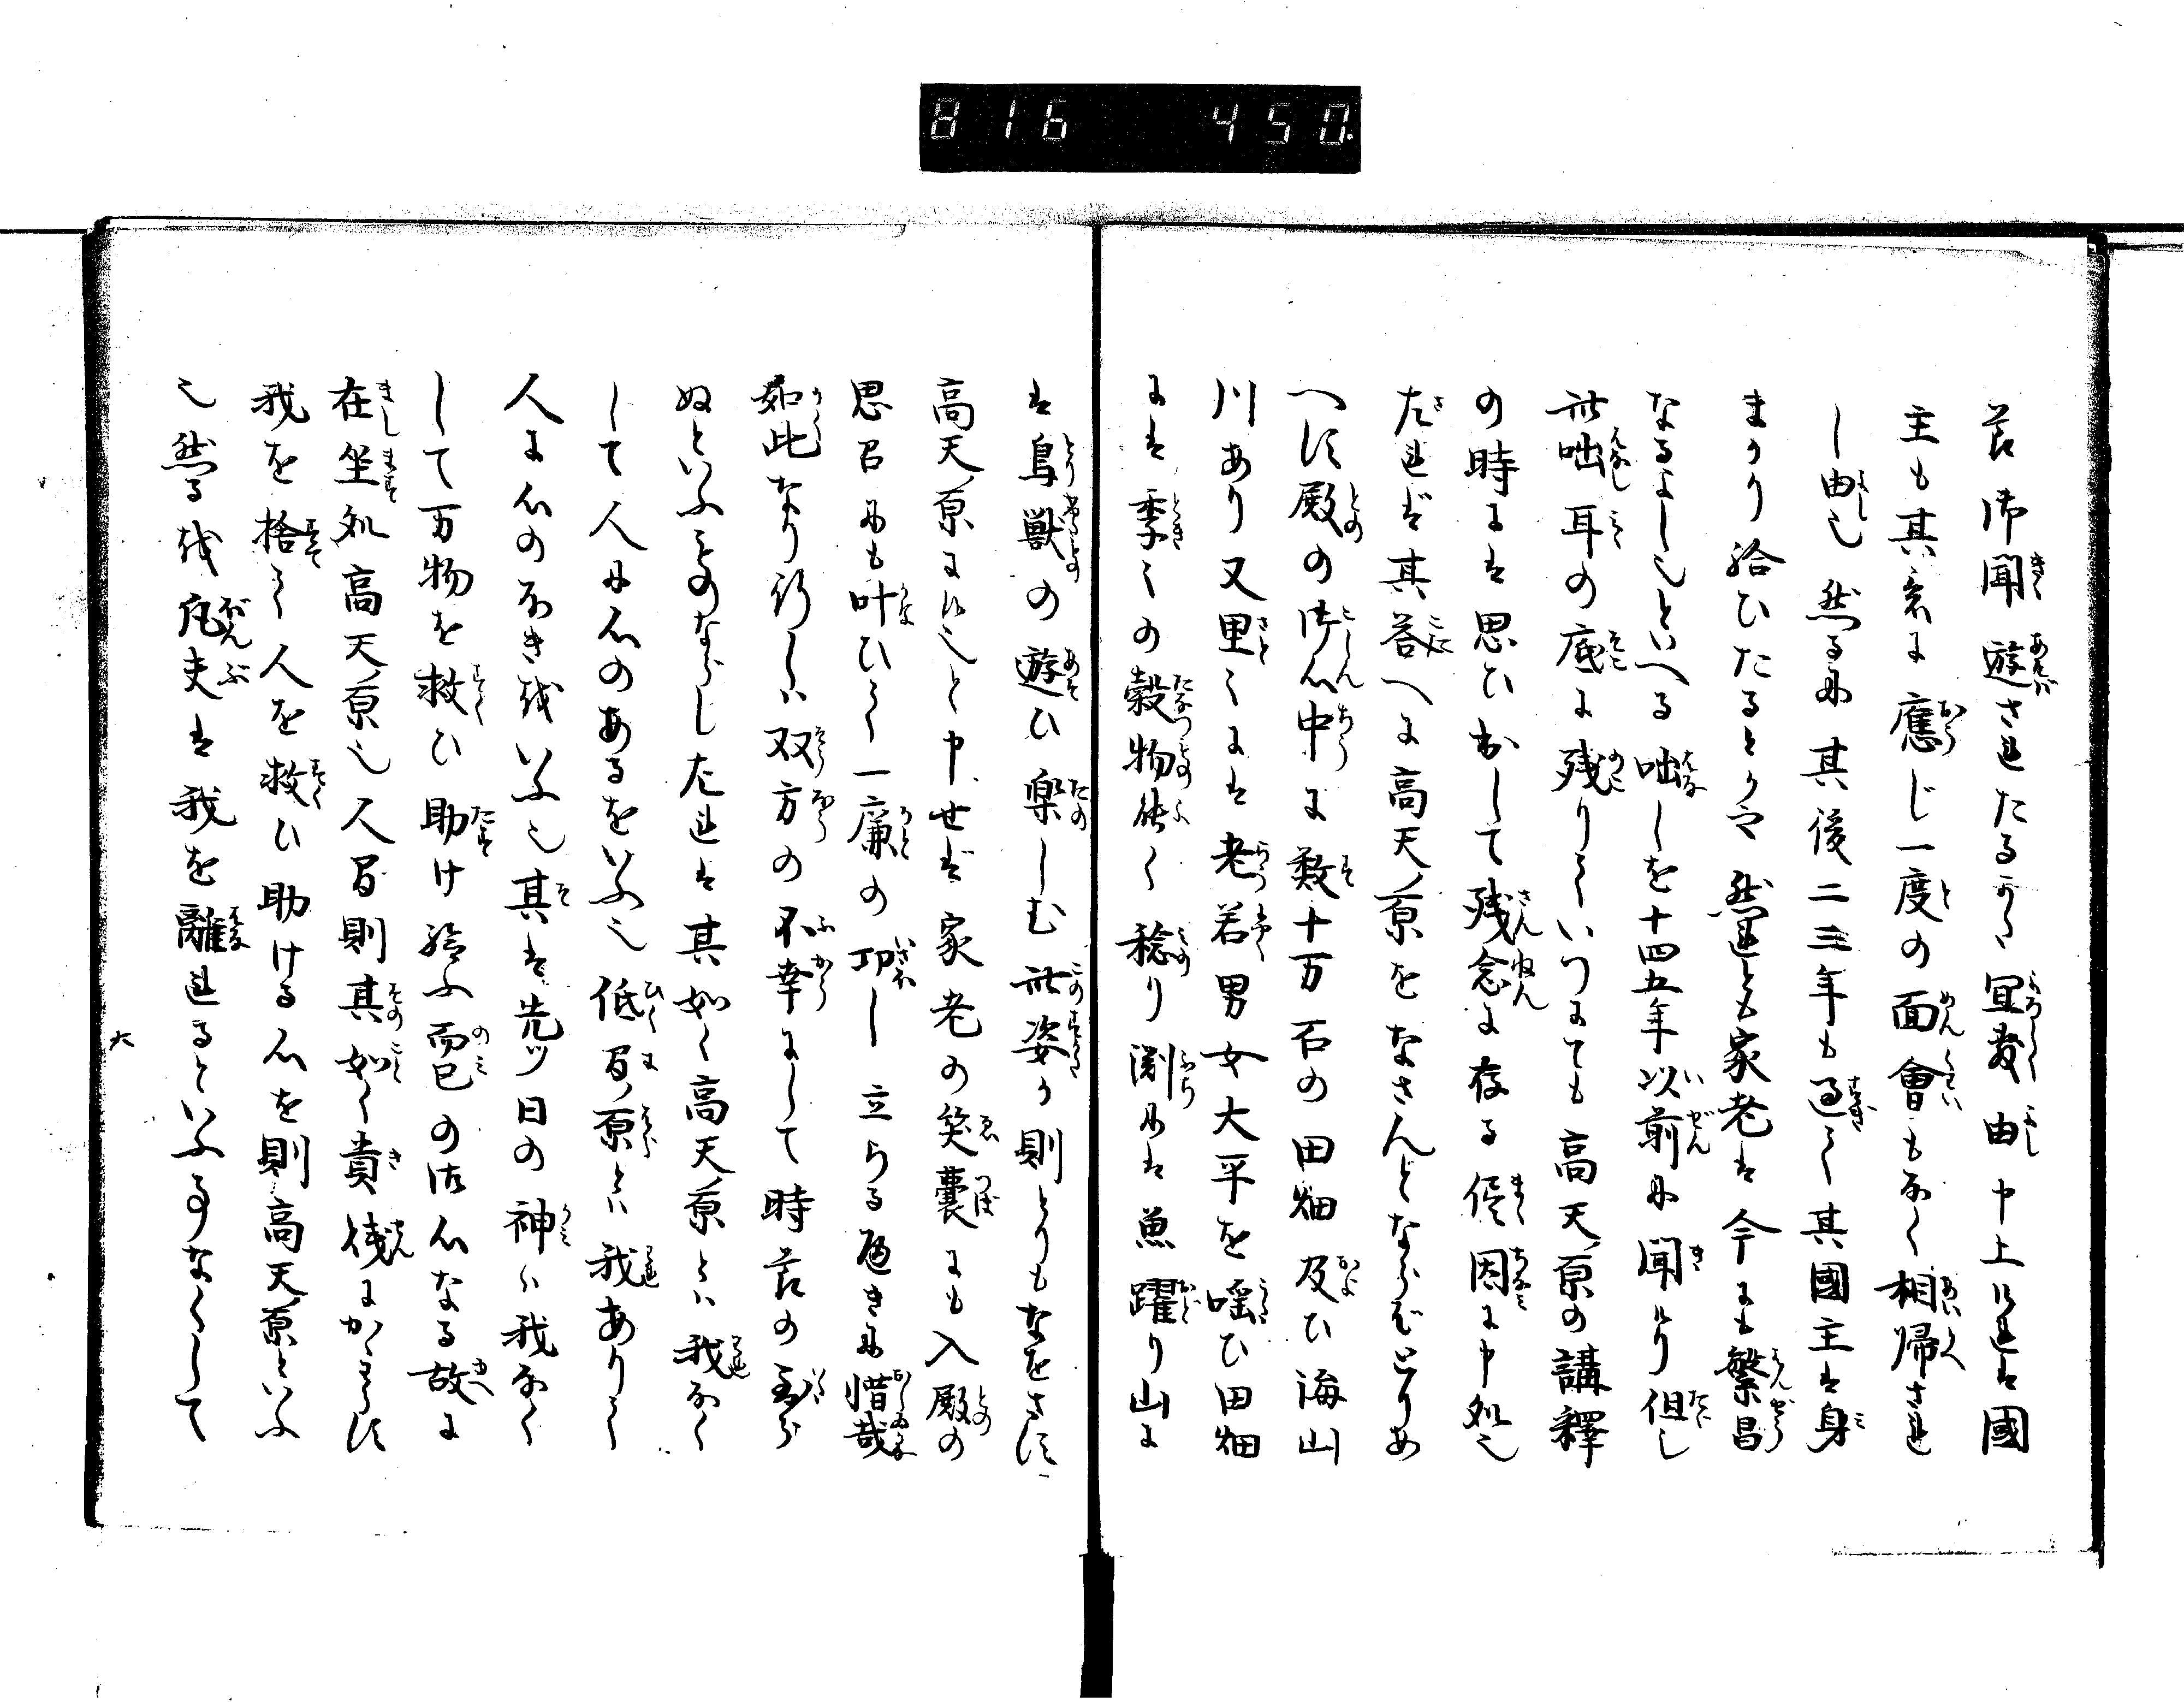 816 450
節御聞遊されたるうへ宜敷由申上けれは國
主も其意に應じ一度の面會もなく相帰され
し由也然るに其後二三年も過て其國主は身
まかり給ひたるとかや然れとも家老は今にも繁昌
なるよし也といへる咄しを十四五年以前に聞けり但し
此咄耳の底に残りていつにても高天原の講釋
の時には思ひ出して残念に存る侭因に申処也
左れば其答へに高天原をなさんどならばとりあ
へす殿の御心中に数十万石の田畑及ひ海山
川あり又里々には老若男女大平を唱ひ田畑
には季々の穀物能く稔り渕には魚躍り山に
は鳥獣の遊ひ楽しむ此姿か則とりもなをさす
高天原に候也と申せば家老の笑嚢にも入殿の
思召にも叶ひて一廉の功し立らる可きに惜哉
如此なり行しハ双方の不幸にして時節の至ら
ぬといふものならし左れは其如く高天原とハ我なく
して人に心のあるをいふ也低間原とハ我ありて
人に心のなきをいふ也其は先ツ日の神ハ我なく
して万物を救ひ助け給ふ而已の御心なる故に
在坐処高天原也人間則其如く貴賎にかゝはらす
我を捨て人を救ひ助ける心を則高天原といふ
也然るを凡夫は我を離れるといふ事なくして
六